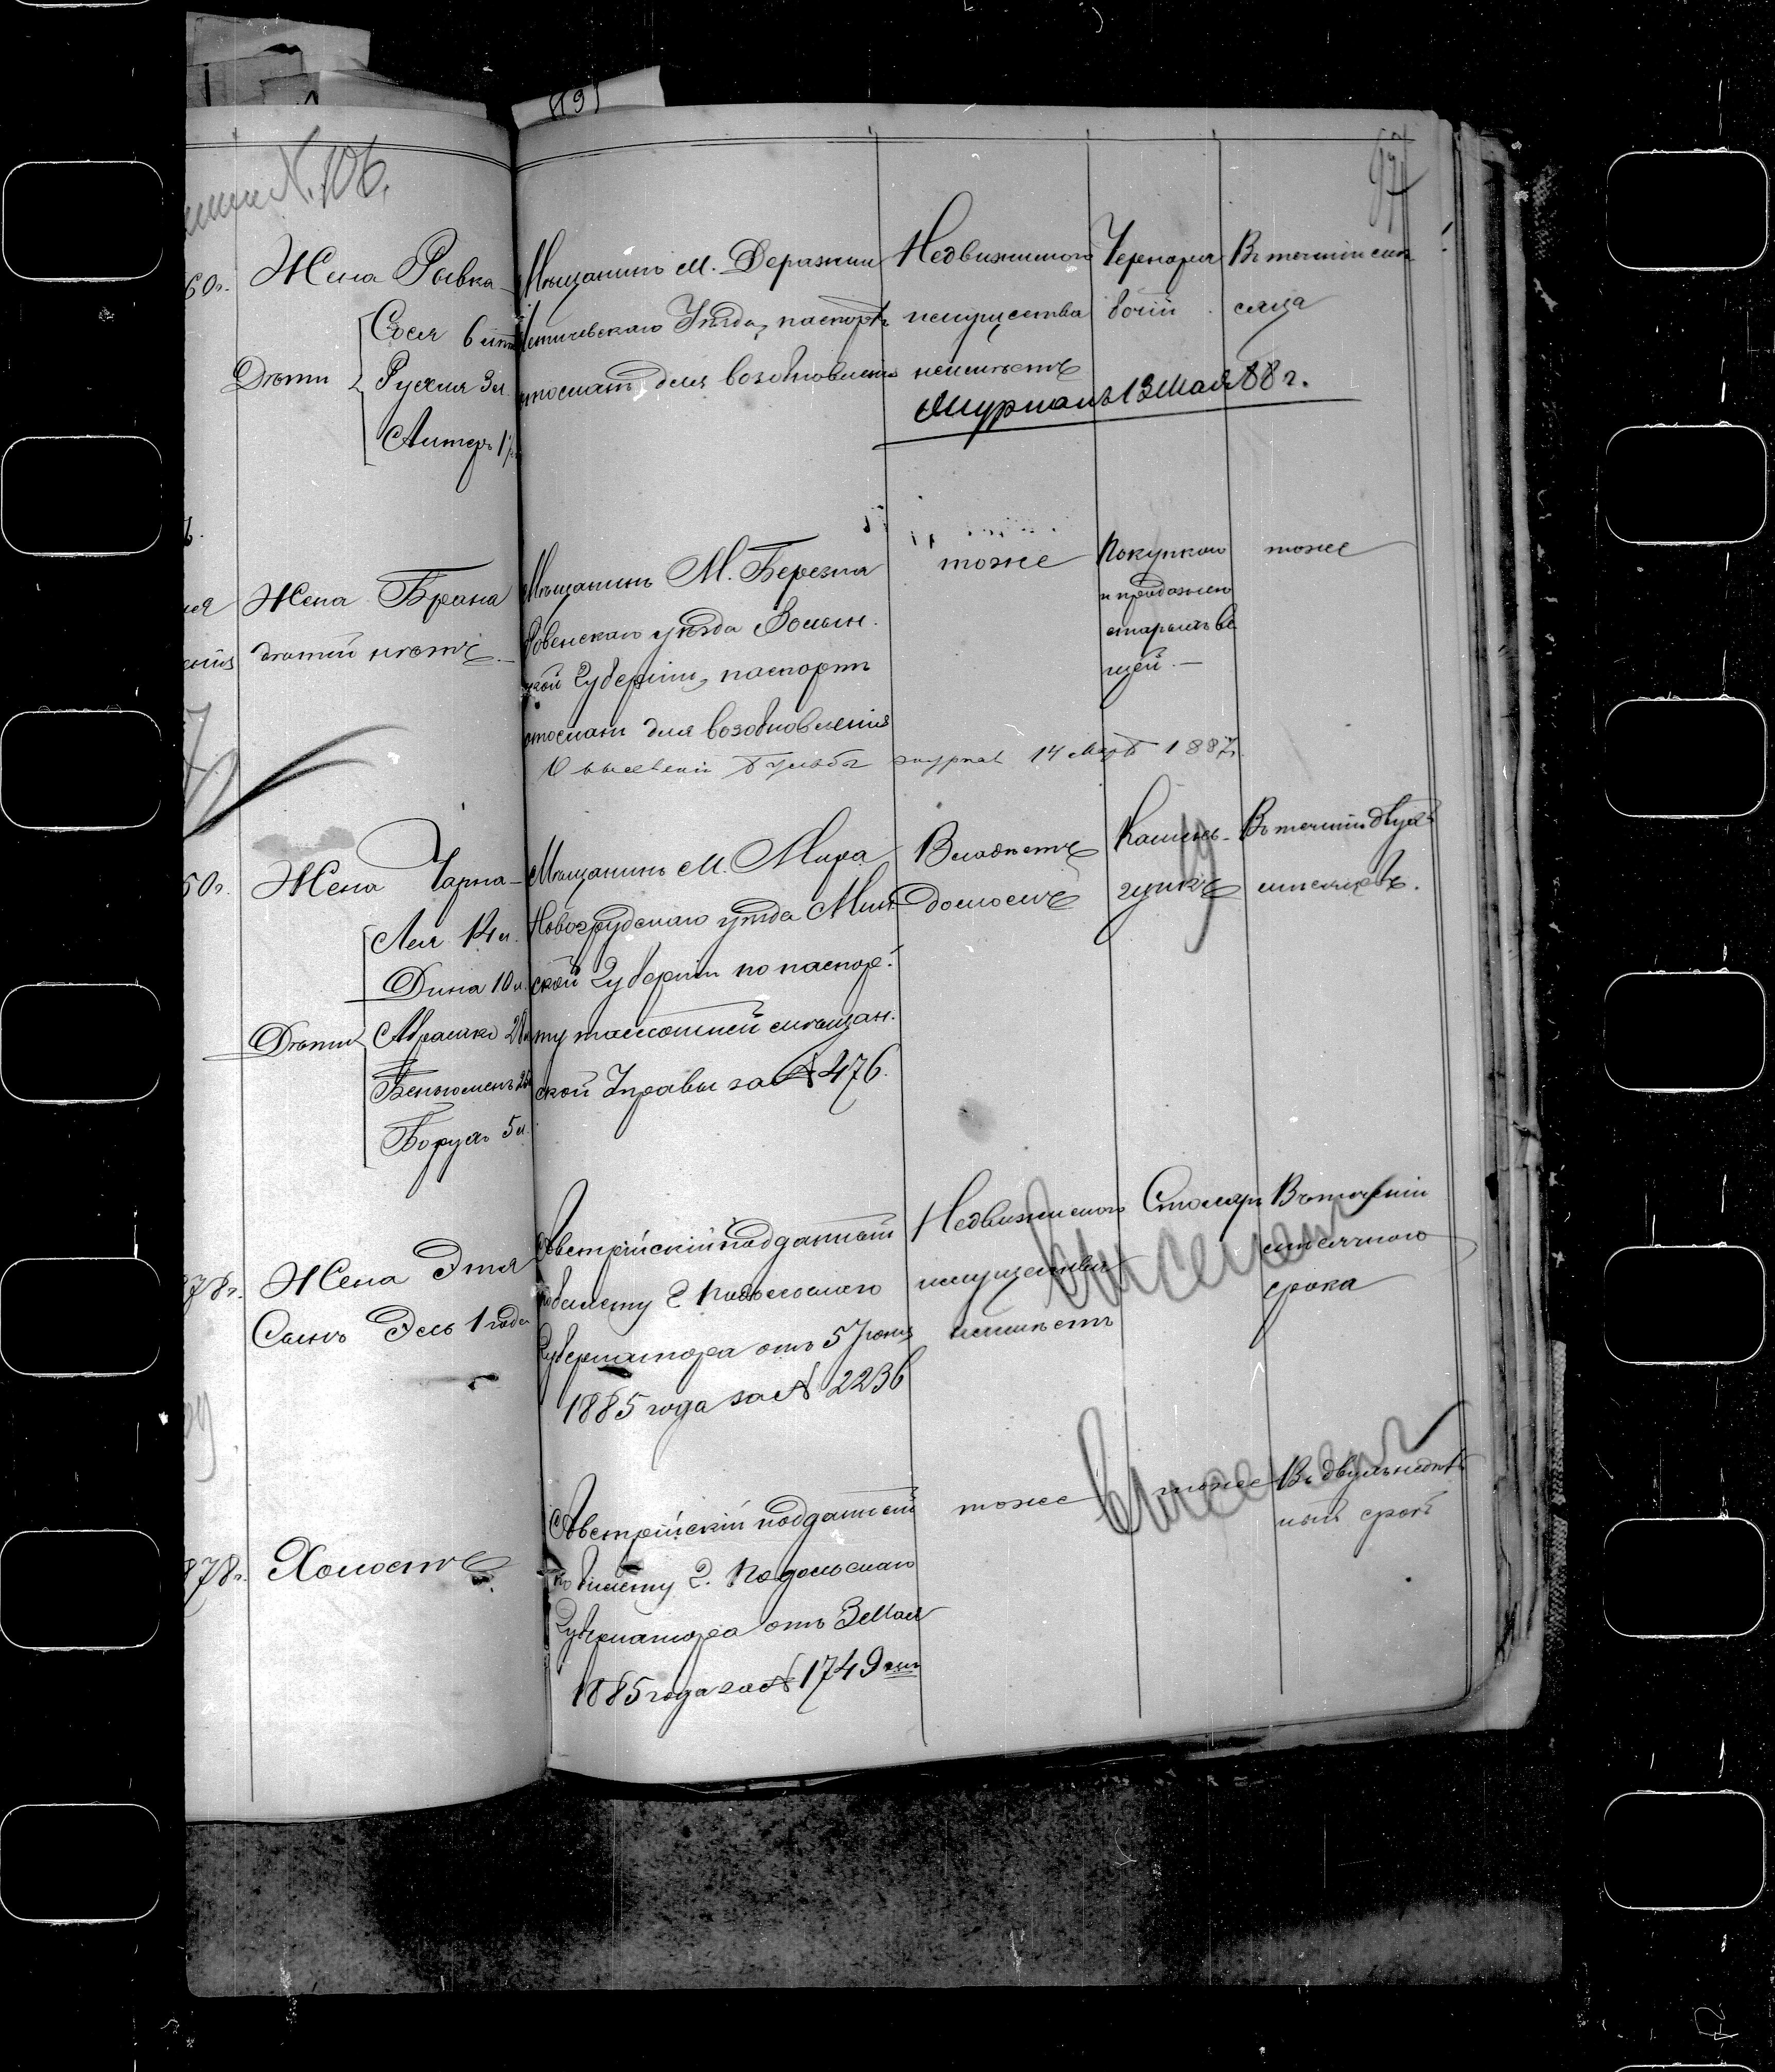 119
97
N. 106.
60 г. Жена Рывка
Дѣти
Сося 6 лѣтъ
Рухля 3 л.
Лейзеръ 1 г.
Мѣщанинъ м. Деражни
Летичевскаго Уѣзда, паспортъ
отосланъ для возобновленія
Недвижимого
имущества
неимѣетъ
Чернора
бочій
Въ теченіи мѣ
сяца
Журналъ 13 Мая 88 г.
Жена Брана
дѣтей нѣтъ.
Мѣщанинъ М. Березна
Ровенскаго уѣзда Волын
ской Губерніи, паспортъ
отосланъ для возобновленія
тоже
Покупкою
и продажею
старыхъ ве
щей.
тоже
О выселеніи журнал 14 Март 1887 г.
50 г. Жена Чарна
Дѣти
Лея 14 л.
Дина 10 л.
Абрамко 28 л.
Беньюменъ 25
Борухъ 5 л.
Мѣщанинъ м. Мира
Новогрудскаго уѣзда Мин
ской Губерніи по паспор
ту тамошней мѣщан
ской Управы за № 476.
Владѣетъ
домомъ
Каменьщикъ
Въ теченіи двухъ
мѣсяцевъ.
878 г. Жена Этля
Сынъ Эль 1 года
Австрійскій подданный
по билету г. Подольскаго
Губернатора отъ 5 Іюня
1885 года за № 2236
Недвижимого
имущества
неимѣетъ
Столяръ
Въ теченіи
мѣсячного
срока
выселен
878 г. Холостъ
Австрійскій подданный
по билету г. Подольскаго
Губернатора отъ 3 Мая
1885 года за № 1749
тоже
тоже
Въ двухънедѣль
ный срокъ
выселен